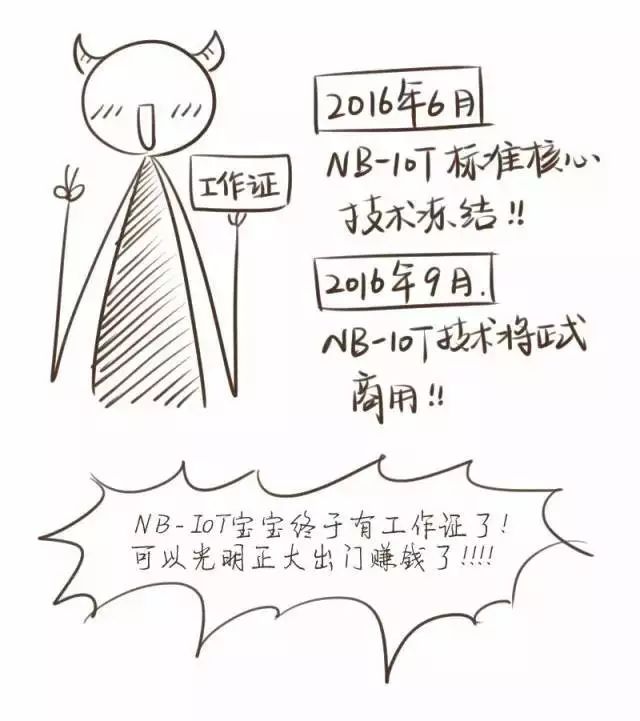 工作证
2016年6月
NB-IoT标准核心
技术冻结!!
2016年9月.
NB-IoT技术将正式
商用!!
NB-IoT宝宝终于有工作证了!
可以光明正大出门赚钱了!!!!